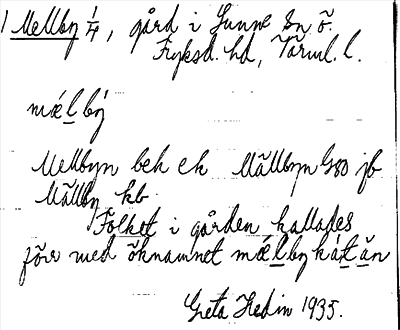 1 Mellby 1/4, gård i Sunne sn ö.
Fryksd. hd, Värml. l.
mæl by
Mellbyn bek ek Mällbyn 600 jb
Mällby kb.
Folket i gården kallades
förr med öknamnet mælbykátăn
Greta Hedin 1935.